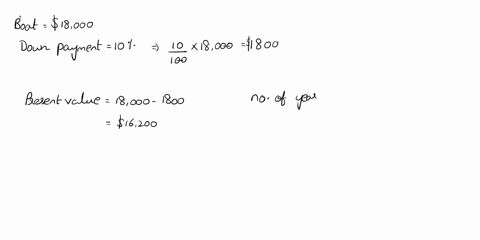 Boat = $18,000
Down payment = 10% ⇒ 10/100 × 18,000 = $1800
Present value = 18,000 - 1800 no. of year
= $16,200